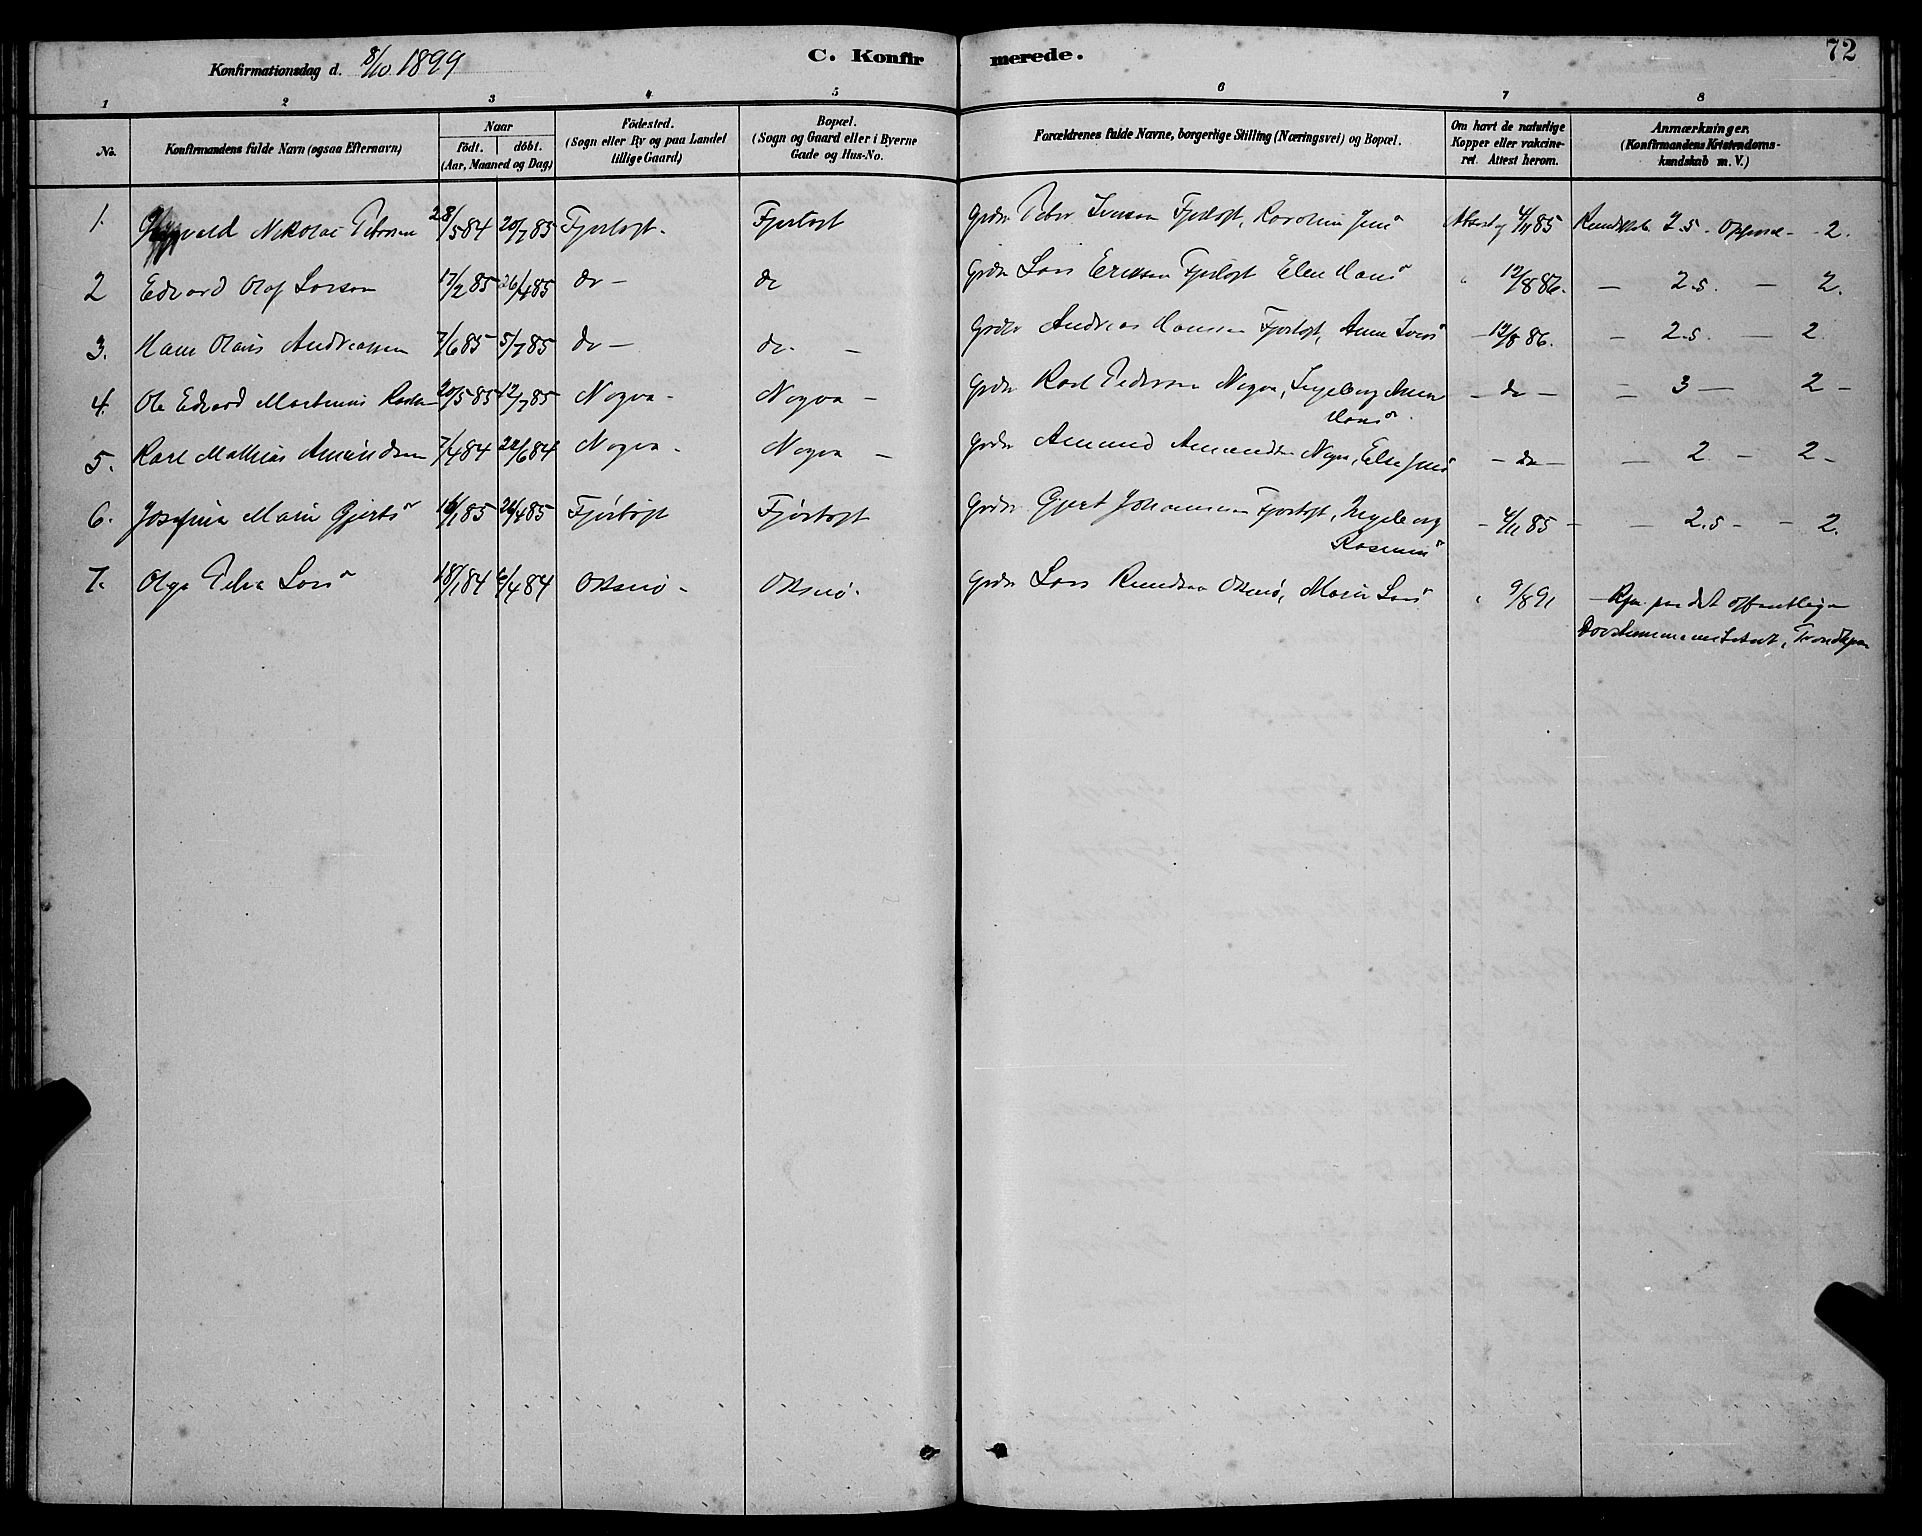 Konfirmationsdag d. 8/10 1899
C. Konfirmerede.
72
1 2 3 4 5 6 7 8
No.
Konfirmandens fulde Navn (ogsaa Efternavn)
Naar
født. døbt.
(Aar, Maaned og Dag)
Födested.
(Sogn eller By og paa Landet
tillige Gaard)
Bopæl.
(Sogn og Gaard eller i Byerne
Gade og Hus-No.
Forældrenes fulde Navne, borgerlige Stilling (Næringsvei) og Bopæl.
Om havt de naturlige
Kopper eller vakcine-
ret. Attest herom.
Anmærkninger.
(Konfirmandens Kristendoms-
kundskab m. V.)
1. Nikolai Petersen 28/5 84 20/7 85 Fjørtoft. Fjørtoft Grdbr Peter Iversen Fjørtoft, Karoline Jens Attest af 4/11 85 Kundskab 2.5. Opførsel - 2.
2 Edvard Olaf Larsen 17/2 85 26/4 85 do - do Grdbr Lars Eriksen Fjørtoft Elen Hans " 12/8 86. - 2.5. - 2.
3. Hans Olaus Andreassen 7/6 85 5/7 85 do - do - Grdbr Andreas Hansen Fjørtoft, Anne Ivers - 12/8 86. - 2.5. - 2
4. Ole Edvard Martinus Karlsen 20/5 85 12/7 85 Nogva - Nogva - Grdbr Karl Pedersen Nogva, Ingeborg Anna - do - - 3 - 2 -
Hans
5. Karl Mathias Amundsen 7/4 84 22/6 84 Nogva - Nogva - Grdbr Amund Amundsen Nogva, Else Jens - do - - 2 - 2 -
6. Josefina Marie Gjerts 16/1 85 26/4 85 Fjørtoft Fjørtoft Grdbr Gjert Johannessen Fjørtoft, Ingeborg - 4/11 85 - - 2.5 - - 2.
Rasmus
7. Olga Petra Lars 18/1 84 6/4 84 Oksnø - Oksnø. Grdbr Lars Knudsen Oksnø, Marie Lars " 9/8 91 - Kfm. paa det offentlige
Døvstummeinstitut, Trondhjem